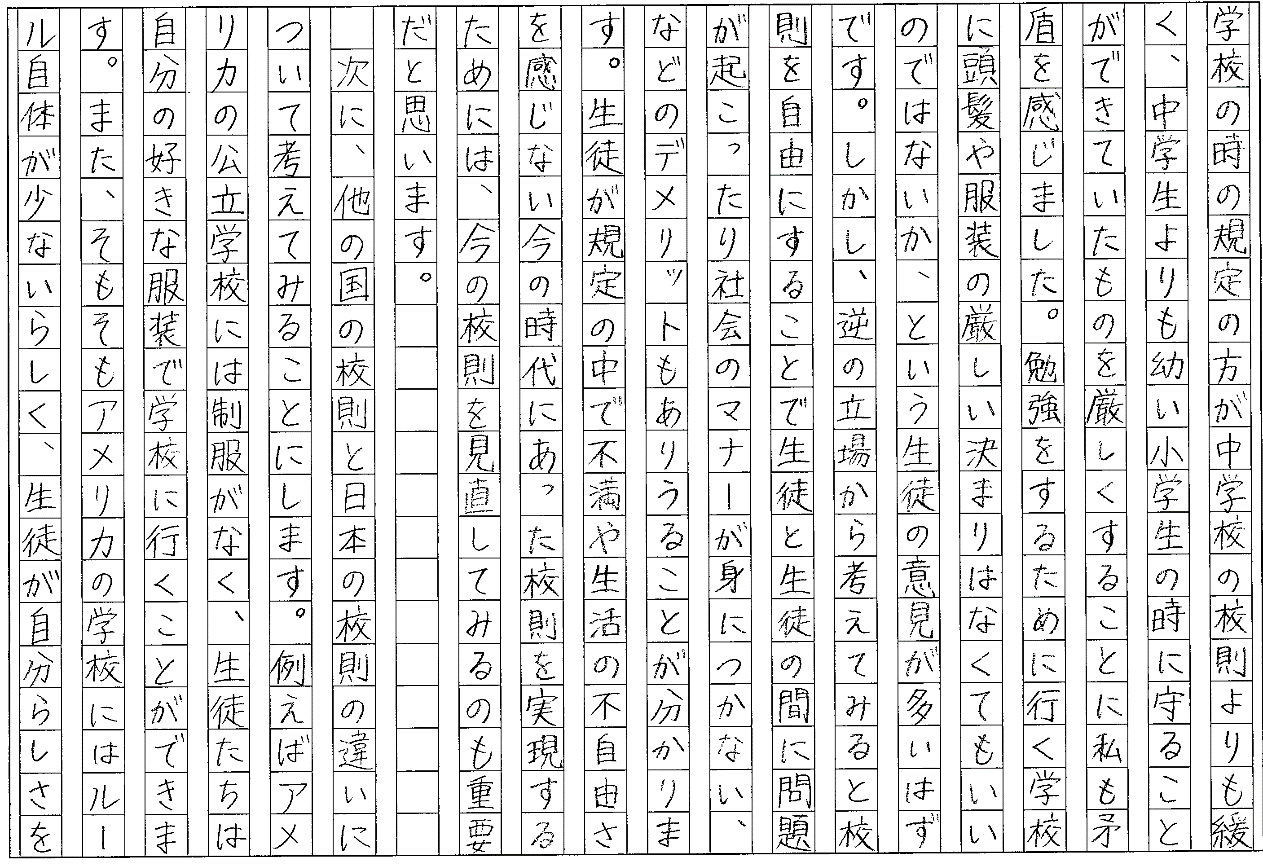 学校の時の規定の方が中学校の校則よりも緩
く、中学生よりも幼い小学生の時に守ること
ができていたものを厳しくすることに私も矛
盾を感じました。勉強をするために行く学校
に頭髪や服装の厳しい決まりはなくてもいい
のではないか、という生徒の意見が多いはず
です。しかし、逆の立場から考えてみると校
則を自由にすることで生徒と生徒の間に問題
が起こったり社会のマナーが身につかない、
などのデメリットもありうることが分かりま
す。生徒が規定の中で不満や生活の不自由さ
を感じない今の時代にあった校則を実現する
ためには、今の校則を見直してみるのも重要
だと思います。
次に、他の国の校則と日本の校則の違いに
ついて考えてみることにします。例えばアメ
リカの公立学校には制服がなく、生徒たちは
自分の好きな服装で学校に行くことができま
す。また、そもそもアメリカの学校にはルー
ル自体が少ないらしく、生徒が自分らしさを